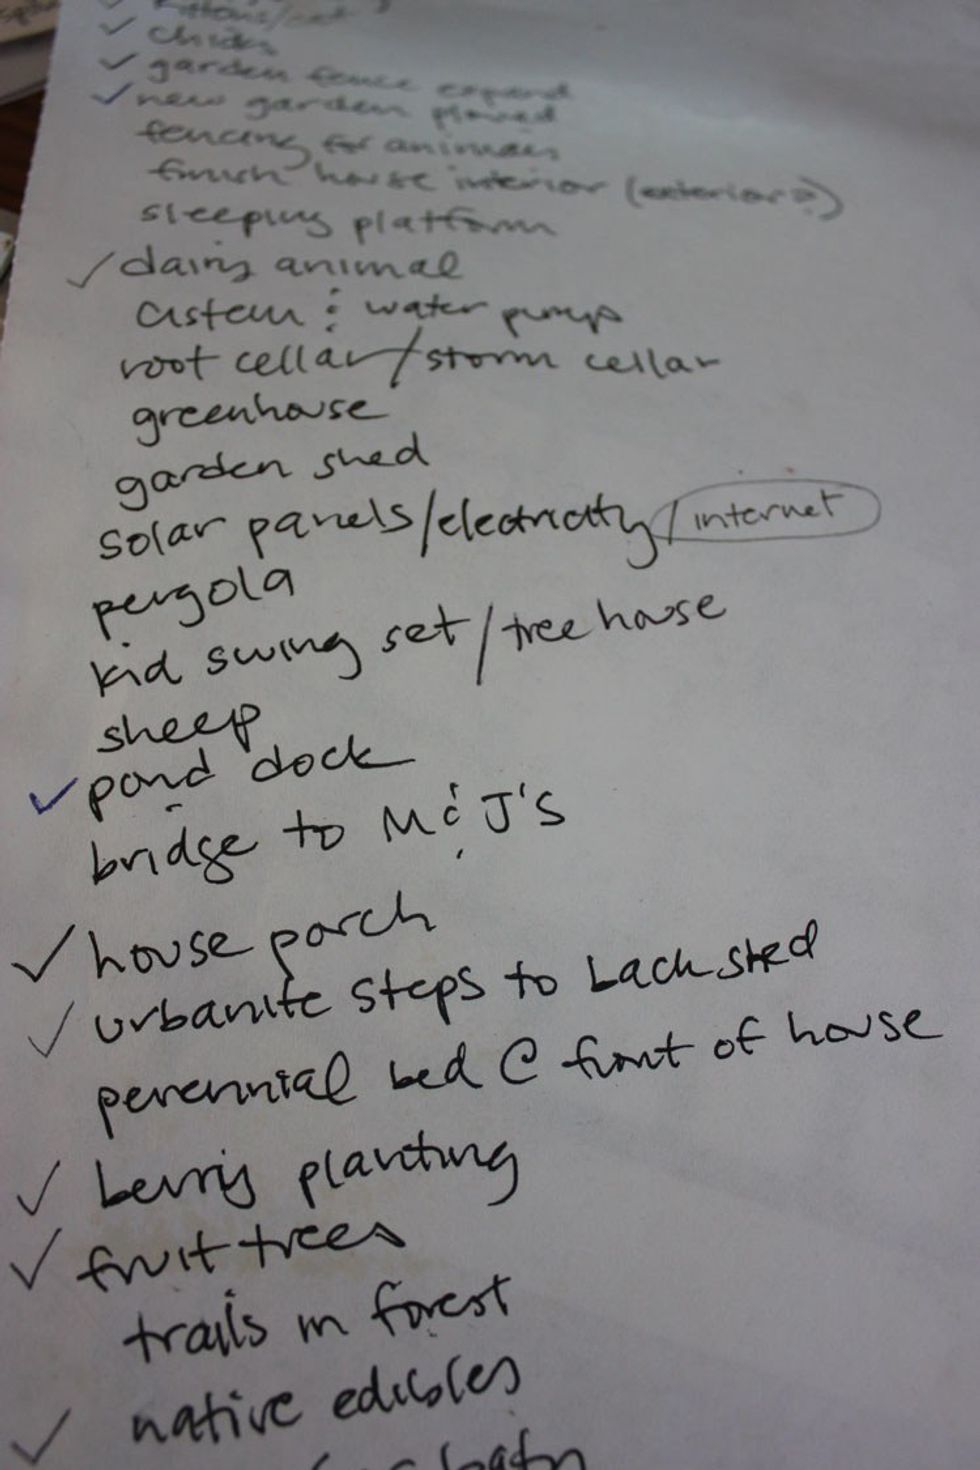 ✓ chicks
✓ garden fence expand
✓ new garden plowed
fencing for animals
finish house interior (exterior?)
sleeping platform
✓ dairy animal
cistern & water pump
root cellar/storm cellar
greenhouse
garden shed
solar panels/electricity/internet
pergola
kid swing set/tree house
sheep
✓ pond dock
bridge to M & J's
✓ house porch
✓ urbanite steps to back shed
perennial bed @ front of house
✓ berry planting
✓ fruit trees
trails in forest
✓ native edibles